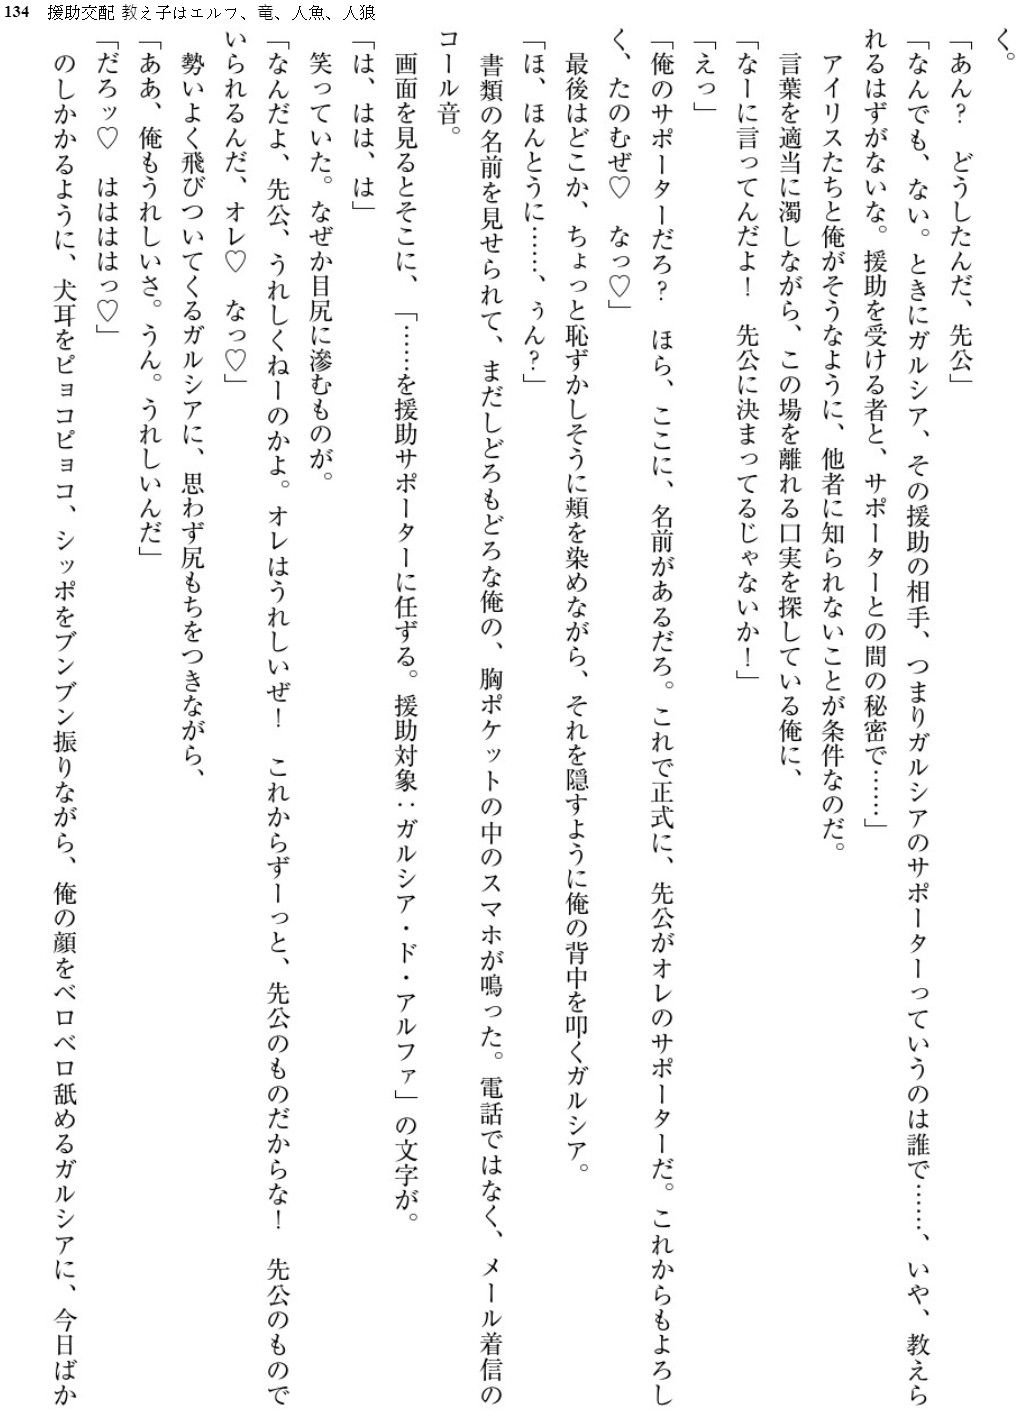 134 援助交配 教え子はエルフ、竜、人魚、人狼
く。
「あん？　どうしたんだ、先公」
「なんでも、ない。ときにガルシア、その援助の相手、つまりガルシアのサポーターっていうのは誰で……、いや、教えら
れるはずがないな。援助を受ける者と、サポーターとの間の秘密で……」
　アイリスたちと俺がそうなように、他者に知られないことが条件なのだ。
　言葉を適当に濁しながら、この場を離れる口実を探している俺に、
「なーに言ってんだよ！　先公に決まってるじゃないか！」
「えっ」
「俺のサポーターだろ？　ほら、ここに、名前があるだろ。これで正式に、先公がオレのサポーターだ。これからもよろし
く、たのむぜ♡　なっ♡」
　最後はどこか、ちょっと恥ずかしそうに頬を染めながら、それを隠すように俺の背中を叩くガルシア。
「ほ、ほんとうに……、ぅん？」
　書類の名前を見せられて、まだしどろもどろな俺の、胸ポケットの中のスマホが鳴った。電話ではなく、メール着信の
コール音。
　画面を見るとそこに、「……を援助サポーターに任ずる。援助対象：ガルシア・ド・アルファ」の文字が。
「は、はは、は」
　笑っていた。なぜか目尻に滲むものが。
「なんだよ、先公、うれしくねーのかよ。オレはうれしいぜ！　これからずーっと、先公のものだからな！　先公のもので
いられるんだ、オレ♡　なっ♡」
　勢いよく飛びついてくるガルシアに、思わず尻もちをつきながら、
「ああ、俺もうれしいさ。うん。うれしいんだ」
「だろッ♡　はははは​っ♡」
　のしかかるように、犬耳をピョコピョコ、シッポをブンブン振りながら、俺の顔をベロベロ舐めるガルシアに、今日ばか